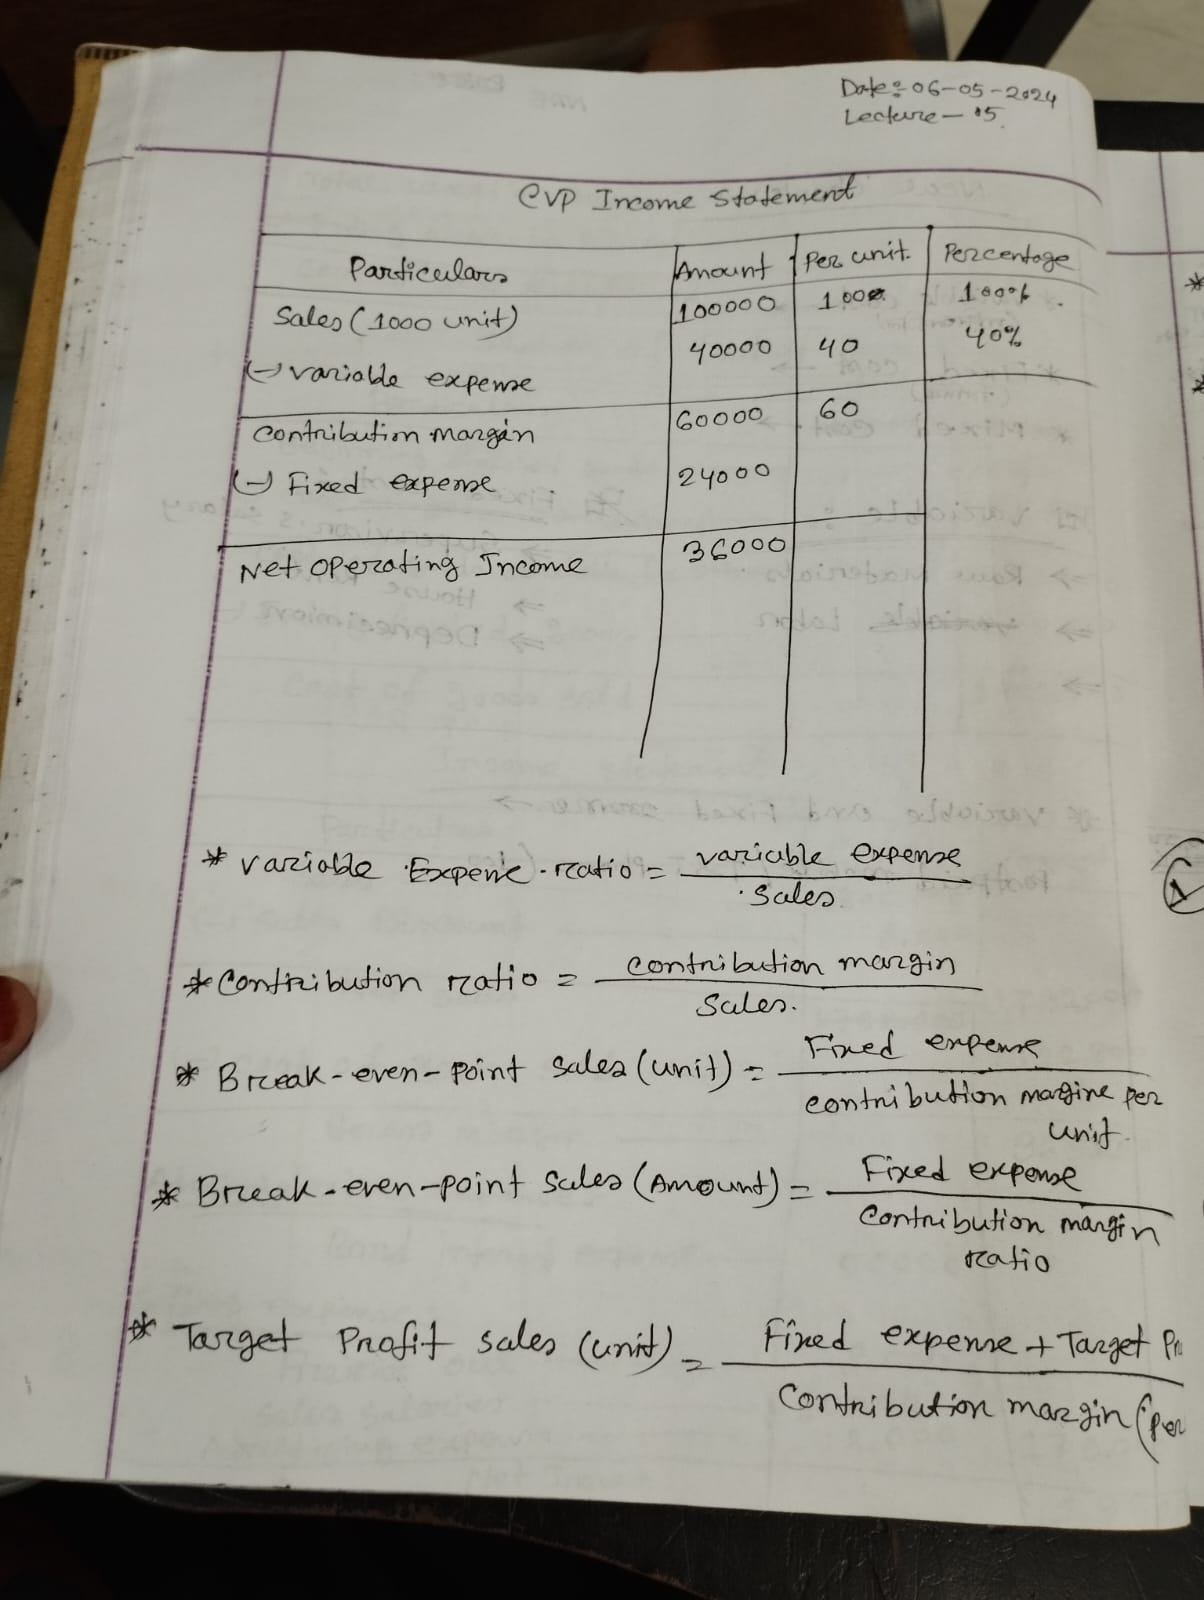 Date: 06-05-2024
Lecture - 05
CVP Income Statement
Particulars Amount Per unit. Percentage
Sales (1000 unit) 100000 100 100%
(-) variable expense 40000 40 40%
Contribution margin 60000 60
(-) Fixed expense 24000
Net operating Income 36000
* variable Expense ratio = variable expense
Sales
* Contribution ratio = contribution margin
Sales.
* Break-even-point sales (unit) = Fixed expense
contribution margine per
unit.
* Break-even-point sales (Amount) = Fixed expense
Contribution margin
ratio
* Target Profit sales (unit) = Fixed expense + Target Pr
Contribution margin (per